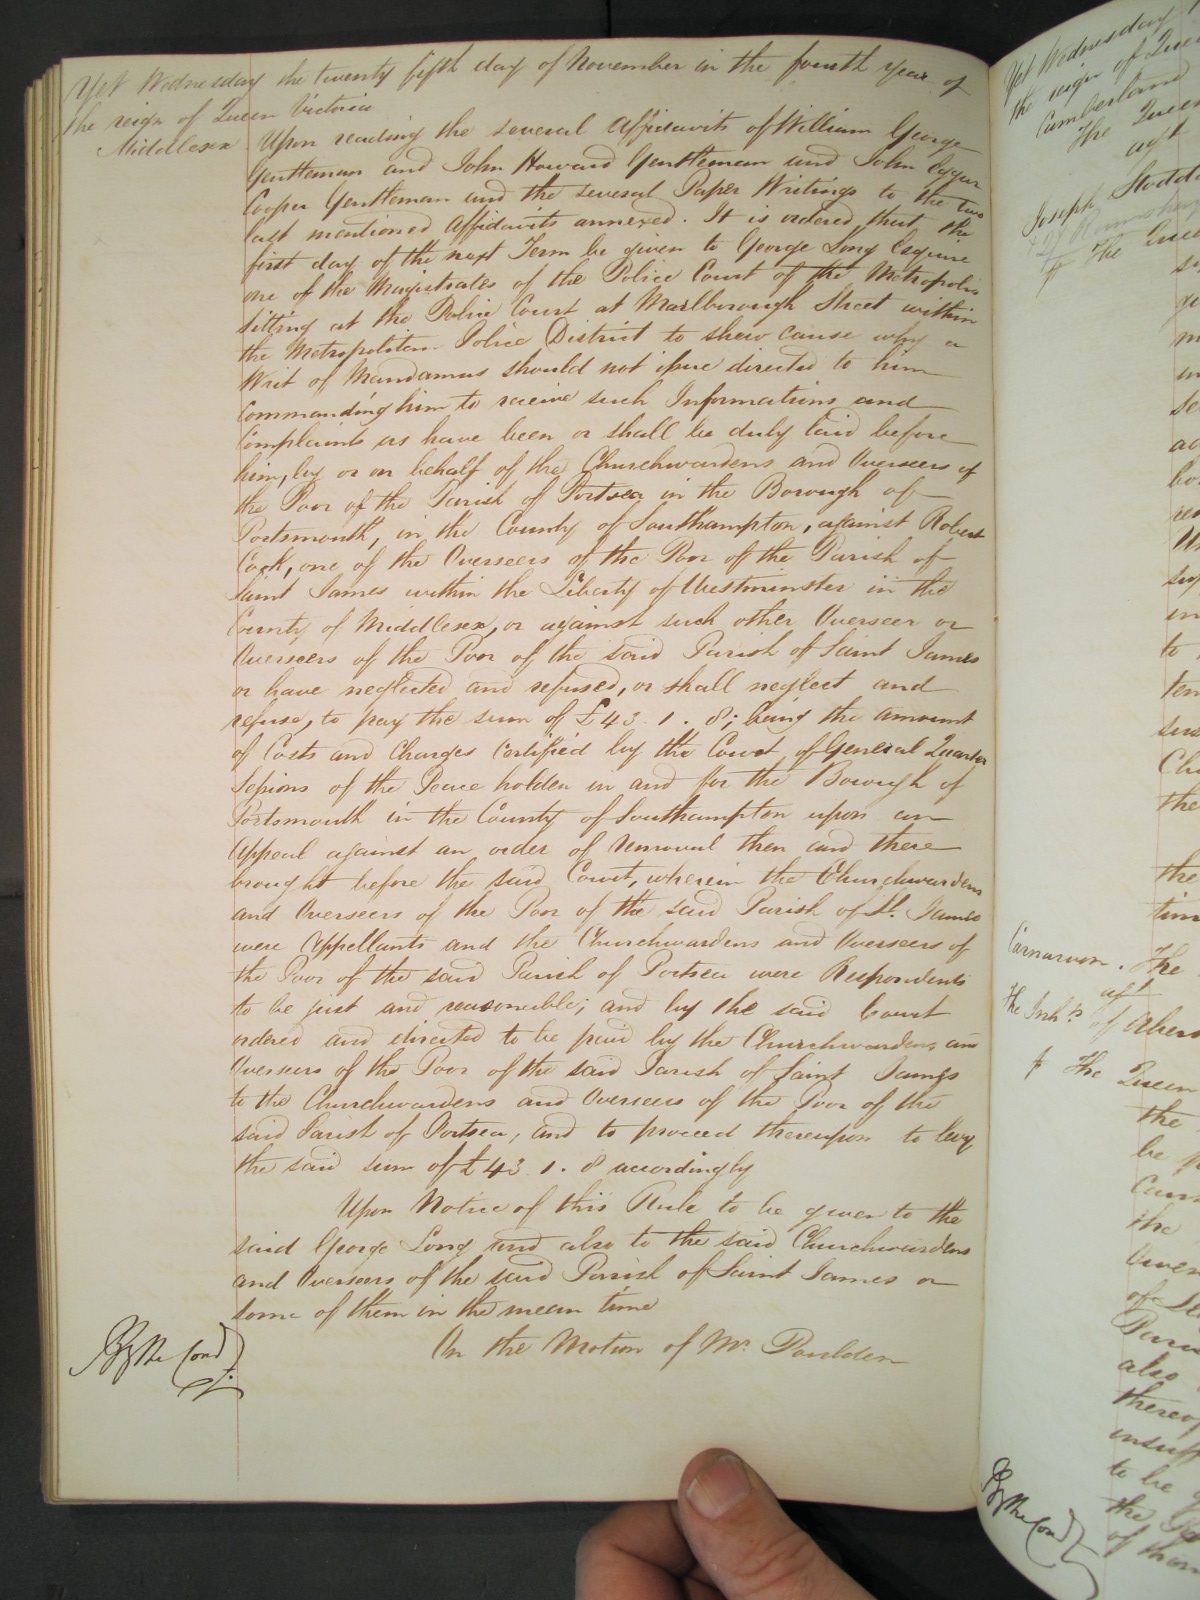 Yet Wednesday the twenty fifth day of November in the fourth year of
the reign of Queen Victoria
Middlesex Upon reading the several Affidavits of William George
Gentleman and John Howard Gentleman and John Edgar
Cooper Gentleman and the several Paper Writings to the two
last mentioned Affidavits annexed. It is ordered that the
first day of the next Term be given to George Long Esquire
one of the Magistrates of the Police Court of the Metropolis
sitting at the Police Court at Marlborough Street within
the Metropolitan Police District to shew cause why a
Writ of Mandamus should not issue directed to him
Commanding him to receive such Informations and
Complaints as have been or shall be duly laid before
him, by or on behalf of the Churchwardens and Overseers of
the Poor of the Parish of Portsea in the Borough of
Portsmouth, in the County of Southampton, against Robert
Cock, one of the Overseers of the Poor of the Parish of
Saint James within the Liberty of Westminster in the
County of Middlesex, or against such other Overseer or
Overseers of the Poor of the said Parish of Saint James
or have neglected and refused, or shall neglect and
refuse, to pay the sum of £43. 1. 8; being the amount
of Costs and Charges certified by the Court of General Quarter
Sessions of the Peace holden in and for the Borough of
Portsmouth in the County of Southampton upon an
Appeal against an order of removal then and there
brought before the said Court, wherein the Churchwardens
and Overseers of the Poor of the said Parish of St. James
were Appellants and the Churchwardens and Overseers of
the Poor of the said Parish of Portsea were Respondents
to be just and reasonable; and by the said Court
ordered and directed to be paid by the Churchwardens and
Overseers of the Poor of the said Parish of Saint James
to the Churchwardens and Overseers of the Poor of the
said Parish of Portsea, and to proceed thereupon to levy
the said sum of £43. 1. 8 accordingly
Upon Notice of this Rule to be given to the
said George Long and also to the said Churchwardens
and Overseers of the said Parish of Saint James or
some of them in the mean time
On the Motion of Mr. Poulden
By the Court
Yet Wednesday
the reign of Queen
Cumberland
The Queen
agt
Joseph
The Queen
the
Carnarvon. The
agt
The Inhts of
The Queen
the
be
the
of
also
thereof
to be
the
of them
By the Court